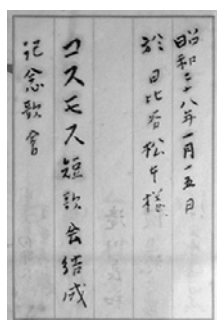 昭和二十八年一月十五日
於日比谷松本樓
コスモス短歌会結成
記念歌會